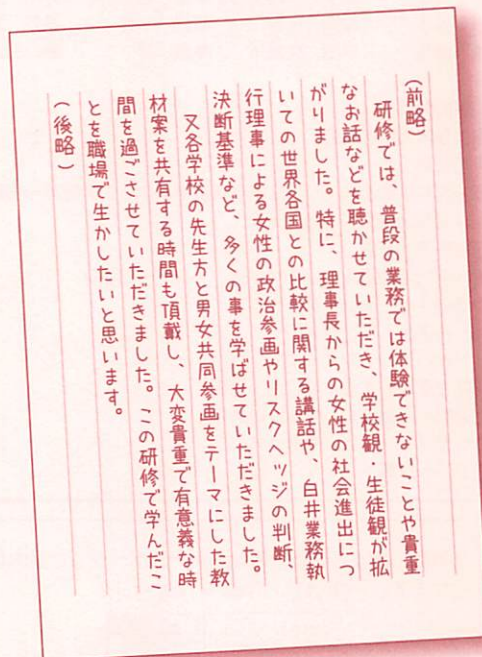 (前略)
研修では、普段の業務では体験できないことや貴重
なお話などを聴かせていただき、学校観・生徒観が拡
がりました。特に、理事長からの女性の社会進出につ
いての世界各国との比較に関する講話や、白井業務執
行理事による女性の政治参画やリスクヘッジの判断、
決断基準など、多くの事を学ばせていただきました。
又各学校の先生方と男女共同参画をテーマにした教
材案を共有する時間も頂戴し、大変貴重で有意義な時
間を過ごさせていただきました。この研修で学んだこ
とを職場で生かしたいと思います。
(後略)